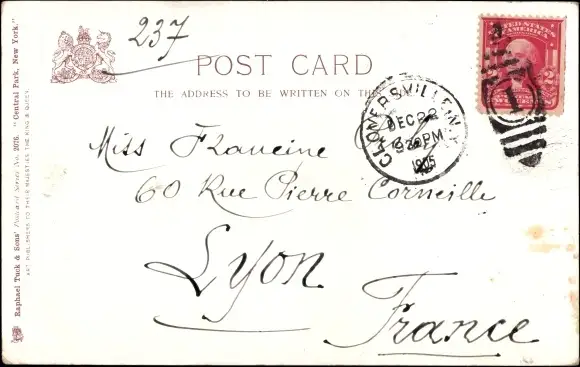 237
POST CARD
THE ADDRESS TO BE WRITTEN ON TH
UNITED STATES
AMERICA
2
CLOVERSVILLE, N.Y.
DEC 22
PM
1905
1
Miss Francine
60 Rue Pierre Corneille
Lyon
France
Raphael Tuck & Sons' Postcard Series No. 2076. "Central Park, New York."
ART PUBLISHERS TO THEIR MAJESTIES THE KING & QUEEN.